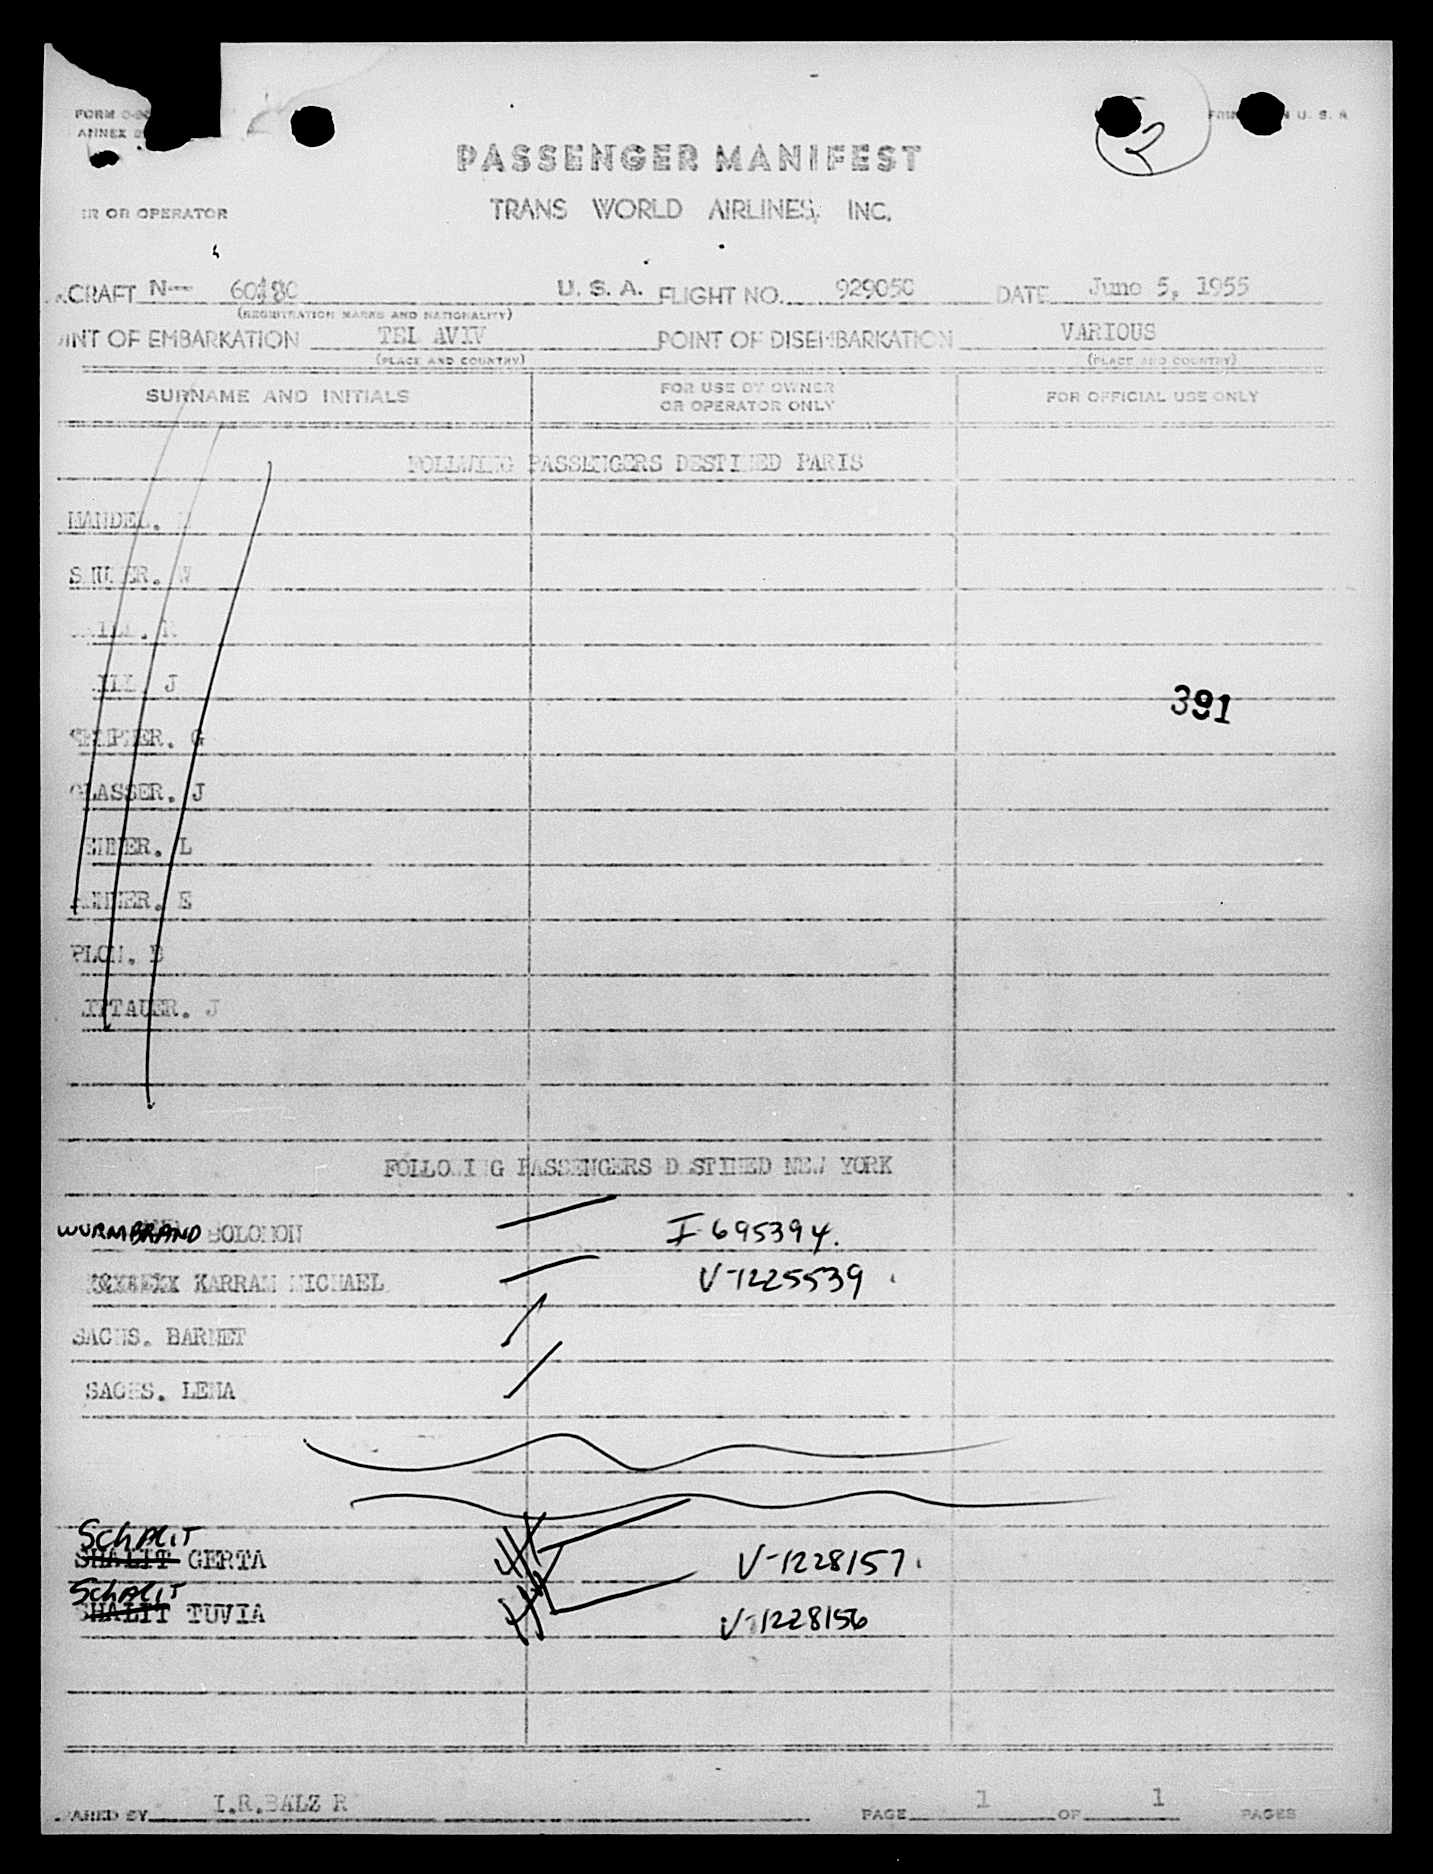 FORM
ANNEX
U. S. A
2
PASSENGER MANIFEST
OR OPERATOR
TRANS WORLD AIRLINES, INC.
CRAFT N-- U. S. A. FLIGHT NO. 929050 DATE June 5, 1955
(REGISTRATION MARKS AND NATIONALITY)
INT OF EMBARKATION TEL AVIV POINT OF DISEMBARKATION VARIOUS
(PLACE AND COUNTRY) (PLACE AND COUNTRY)
SURNAME AND INITIALS FOR USE BY OWNER OR OPERATOR ONLY FOR OFFICIAL USE ONLY
FOLLWING PASSENGERS DESTINED PARIS
MANDEL.
W
ILL. J
391
G
GLASSER. J
L
E
PLON. B
J
FOLLOWING PASSENGERS DESTINED NEW YORK
WURMBRAND SOLOMON I-695394.
KARRAM MICHAEL V-1225539
SACHS. BARNET
SACHS. LENA
SCHALIT
SHALIT GERTA V-1228157.
SCHALIT
SHALIT TUVIA V-1228156
ARED BY I.R.BALZ R PAGE 1 OF 1 PAGES